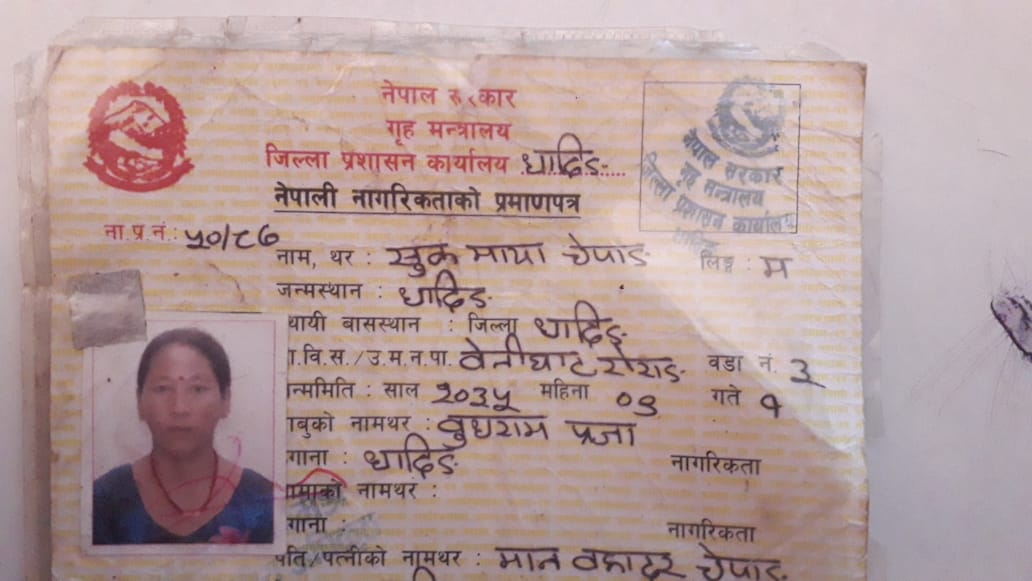 नेपाल सरकार
गृह मन्त्रालय
जिल्ला प्रशासन कार्यालय धादिङ
नेपाली नागरिकताको प्रमाणपत्र
नेपाल सरकार
गृह मन्त्रालय
जिल्ला प्रशासन कार्यालय
धादिङ
ना.प्र.नं.: ५०/८७
नाम, थर : सुक माया चेपाङ लिङ्ग : म
जन्मस्थान : धादिङ
थायी बासस्थान : जिल्ला धादिङ
ा.वि.स./उ.म.न.पा. वेनीघाट रोराङ वडा नं. ३
न्ममिति : साल २०३५ महिना ०९ गते १
ाबुको नामथर : बुधराम प्रजा
गाना : धादिङ नागरिकता
ामाको नामथर :
गाना : नागरिकता
पति/पत्नीको नामथर : मान वहादुर चेपाङ